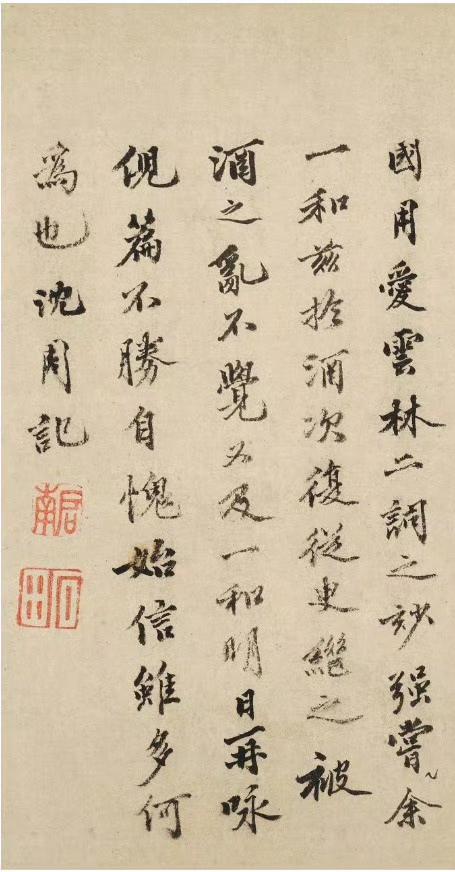 國用愛雲林二詞之妙强嘗余
一和茲於酒次復從臾繼之被
酒之亂不覺又及一和明日再咏
倪篇不勝自愧始信雖多何
為也沈周記